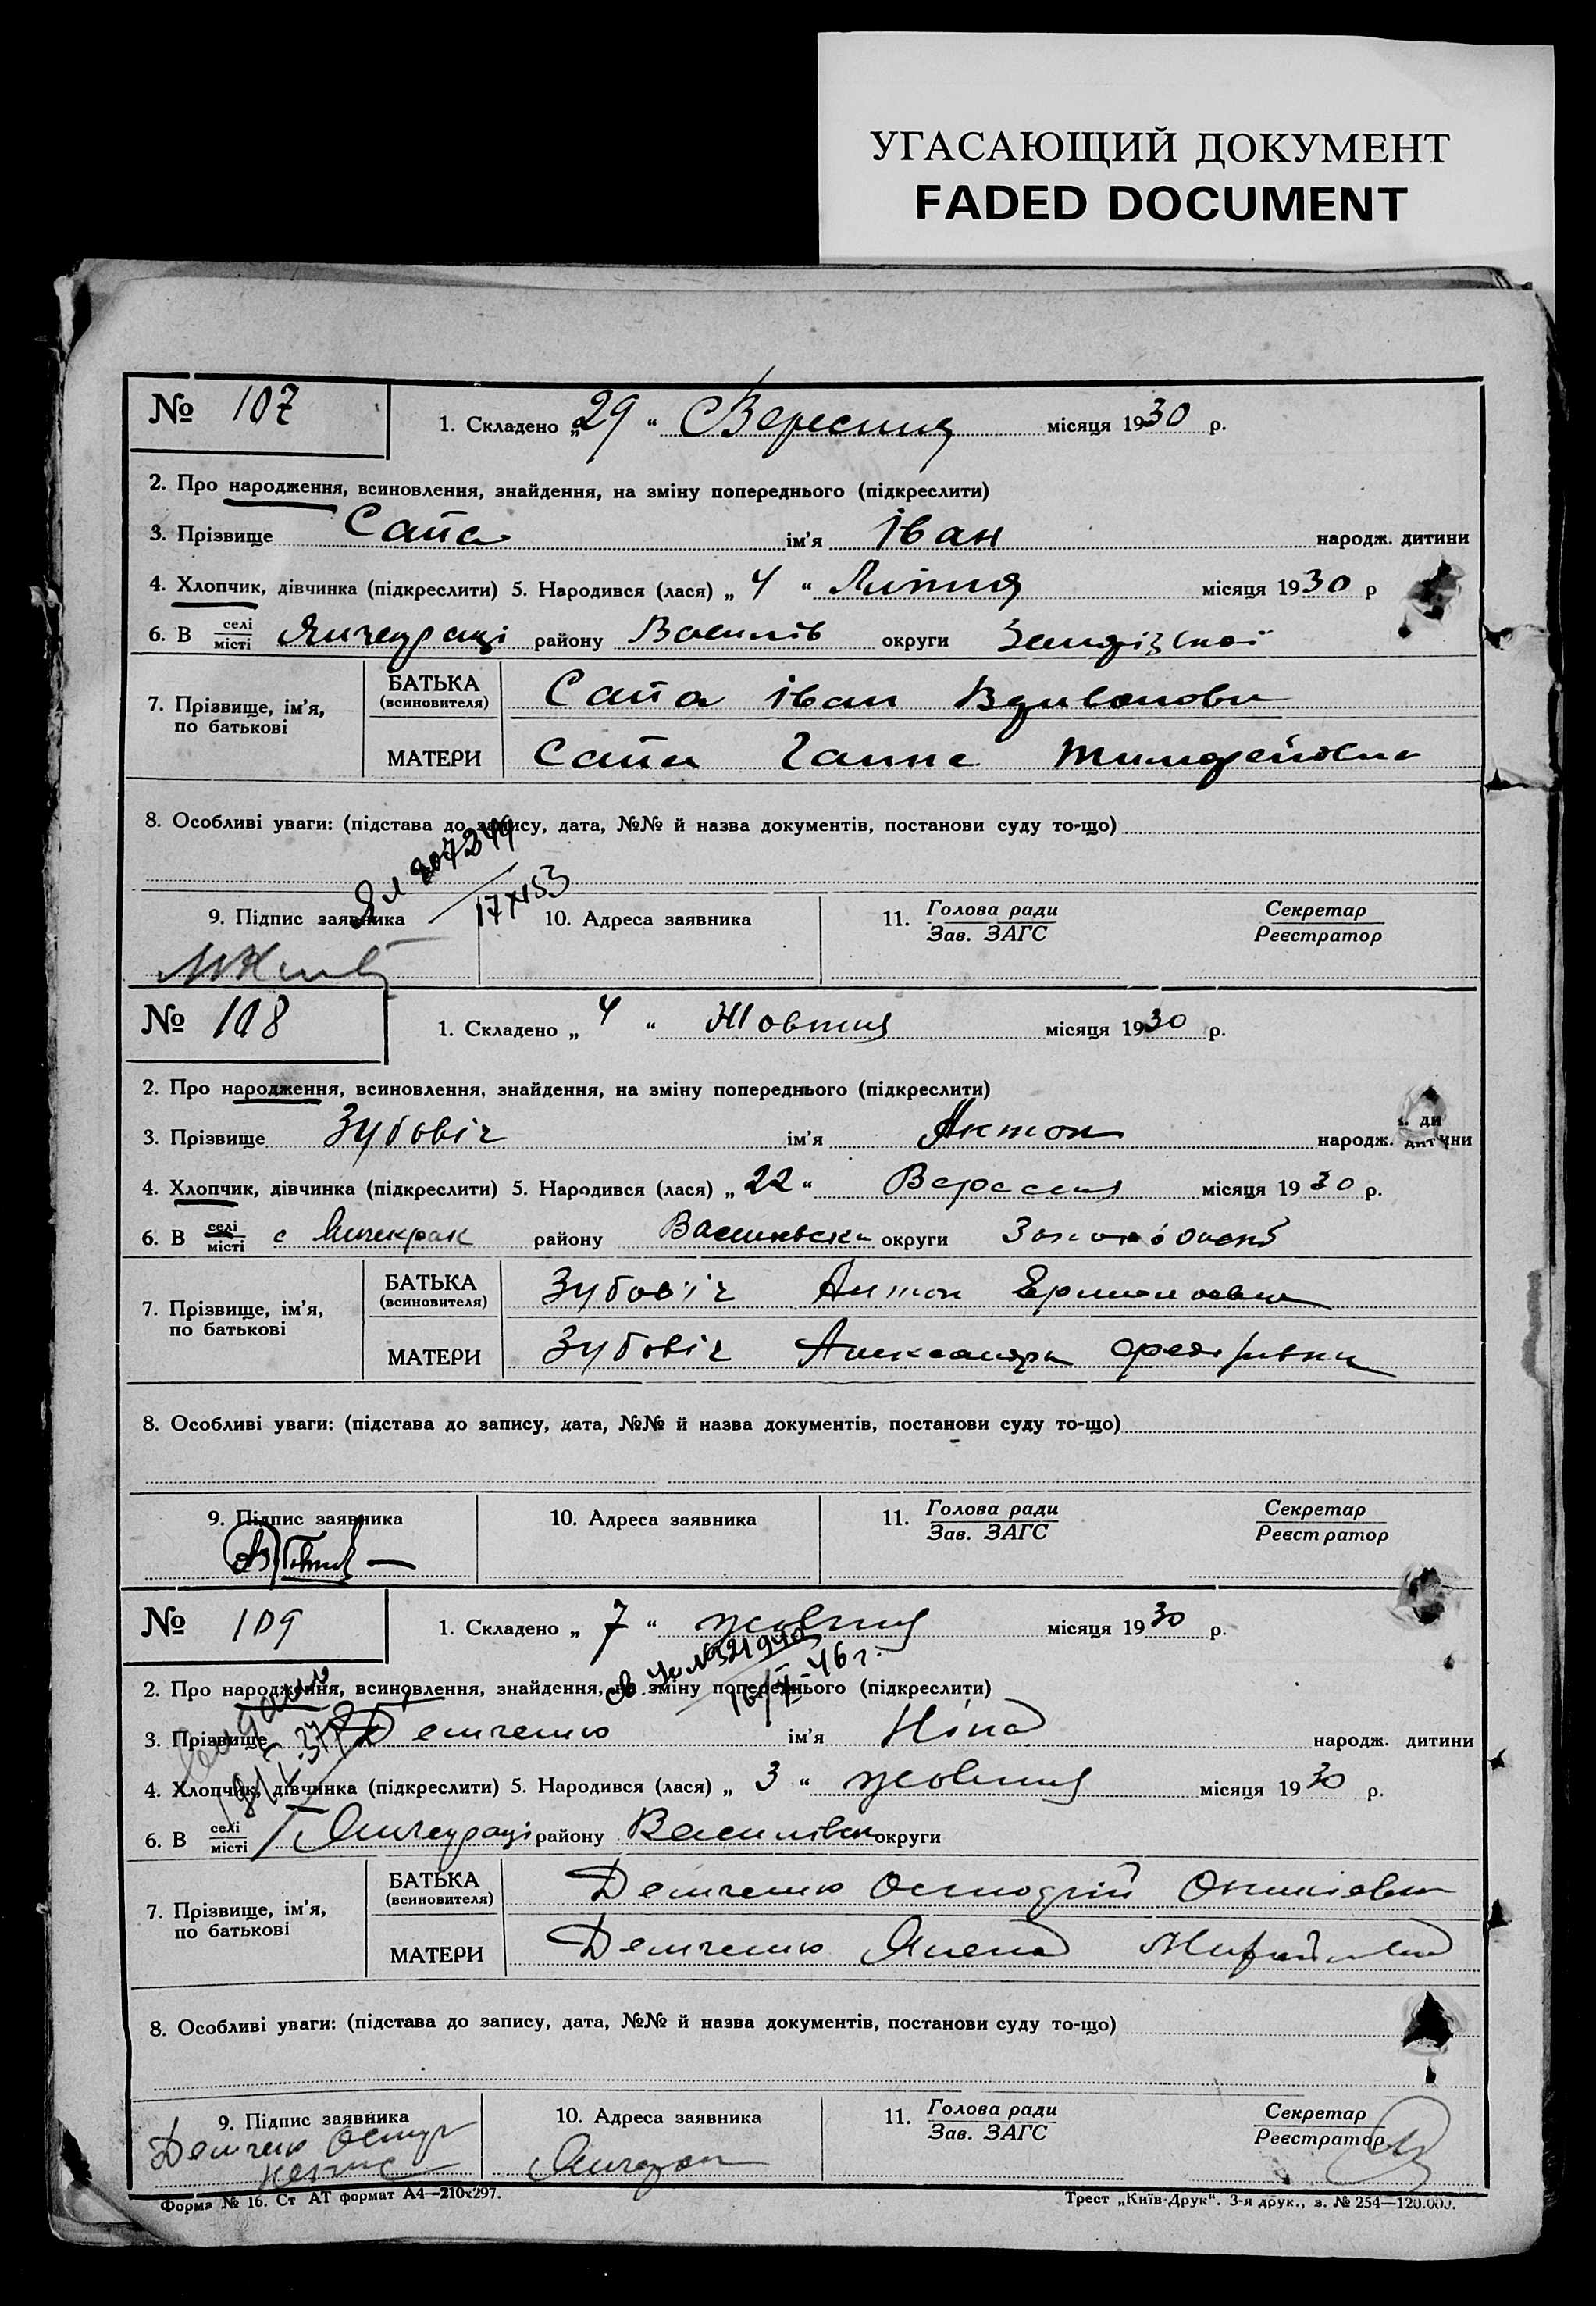 УГАСАЮЩИЙ ДОКУМЕНТ
FADED DOCUMENT
№ 107
1. Складено „29“ Вересния місяця 1930 р.
2. Про народження, всиновлення, знайдення, на зміну попереднього (підкреслити)
3. Прізвище Сапа ім'я Іван народж. дитини
4. Хлопчик, дівчинка (підкреслити) 5. Народився (лася) „4“ Липня місяця 1930 р
6. В селі місті Янчекраці району Василів округи
7. Прізвище, ім'я, по батькові
БАТЬКА (всиновителя) Сапа Іван
МАТЕРИ Сапа Ганна Тимофеївна
8. Особливі уваги: (підстава до запису, дата, №№ й назва документів, постанови суду то-що)
207249
17/XI 53
9. Підпис заявника
10. Адреса заявника
11. Голова ради Зав. ЗАГС
Секретар Реєстратор
№ 108
1. Складено „4“ Жовтня місяця 1930 р.
2. Про народження, всиновлення, знайдення, на зміну попереднього (підкреслити)
3. Прізвище Зубовіч ім'я Антон народж. дитини
4. Хлопчик, дівчинка (підкреслити) 5. Народився (лася) „22“ Вересня місяця 1930 р.
6. В селі місті с Янчекрак району Васильвськи округи
7. Прізвище, ім'я, по батькові
БАТЬКА (всиновителя) Зубовіч Антон
МАТЕРИ Зубовіч Александра
8. Особливі уваги: (підстава до запису, дата, №№ й назва документів, постанови суду то-що)
9. Підпис заявника
10. Адреса заявника
11. Голова ради Зав. ЗАГС
Секретар Реєстратор
№ 109
1. Складено „7“ жовтня місяця 1930 р.
16/X-46 г.
2. Про народження, всиновлення, знайдення, на зміну попереднього (підкреслити)
3. Прізвище Демченко ім'я Ніна народж. дитини
4. Хлопчик, дівчинка (підкреслити) 5. Народився (лася) „3“ жовтня місяця 1930 р.
6. В селі місті Янчекраці району Василівськ округи
7. Прізвище, ім'я, по батькові
БАТЬКА (всиновителя) Демченко
МАТЕРИ Демченко Михайловна
8. Особливі уваги: (підстава до запису, дата, №№ й назва документів, постанови суду то-що)
9. Підпис заявника Демченко
10. Адреса заявника Янчекрак
11. Голова ради Зав. ЗАГС
Секретар Реєстратор
Форма № 16. Ст АТ формат А4—210х297.
Трест „Київ-Друк“. 3-я друк., з. № 254—120.000.